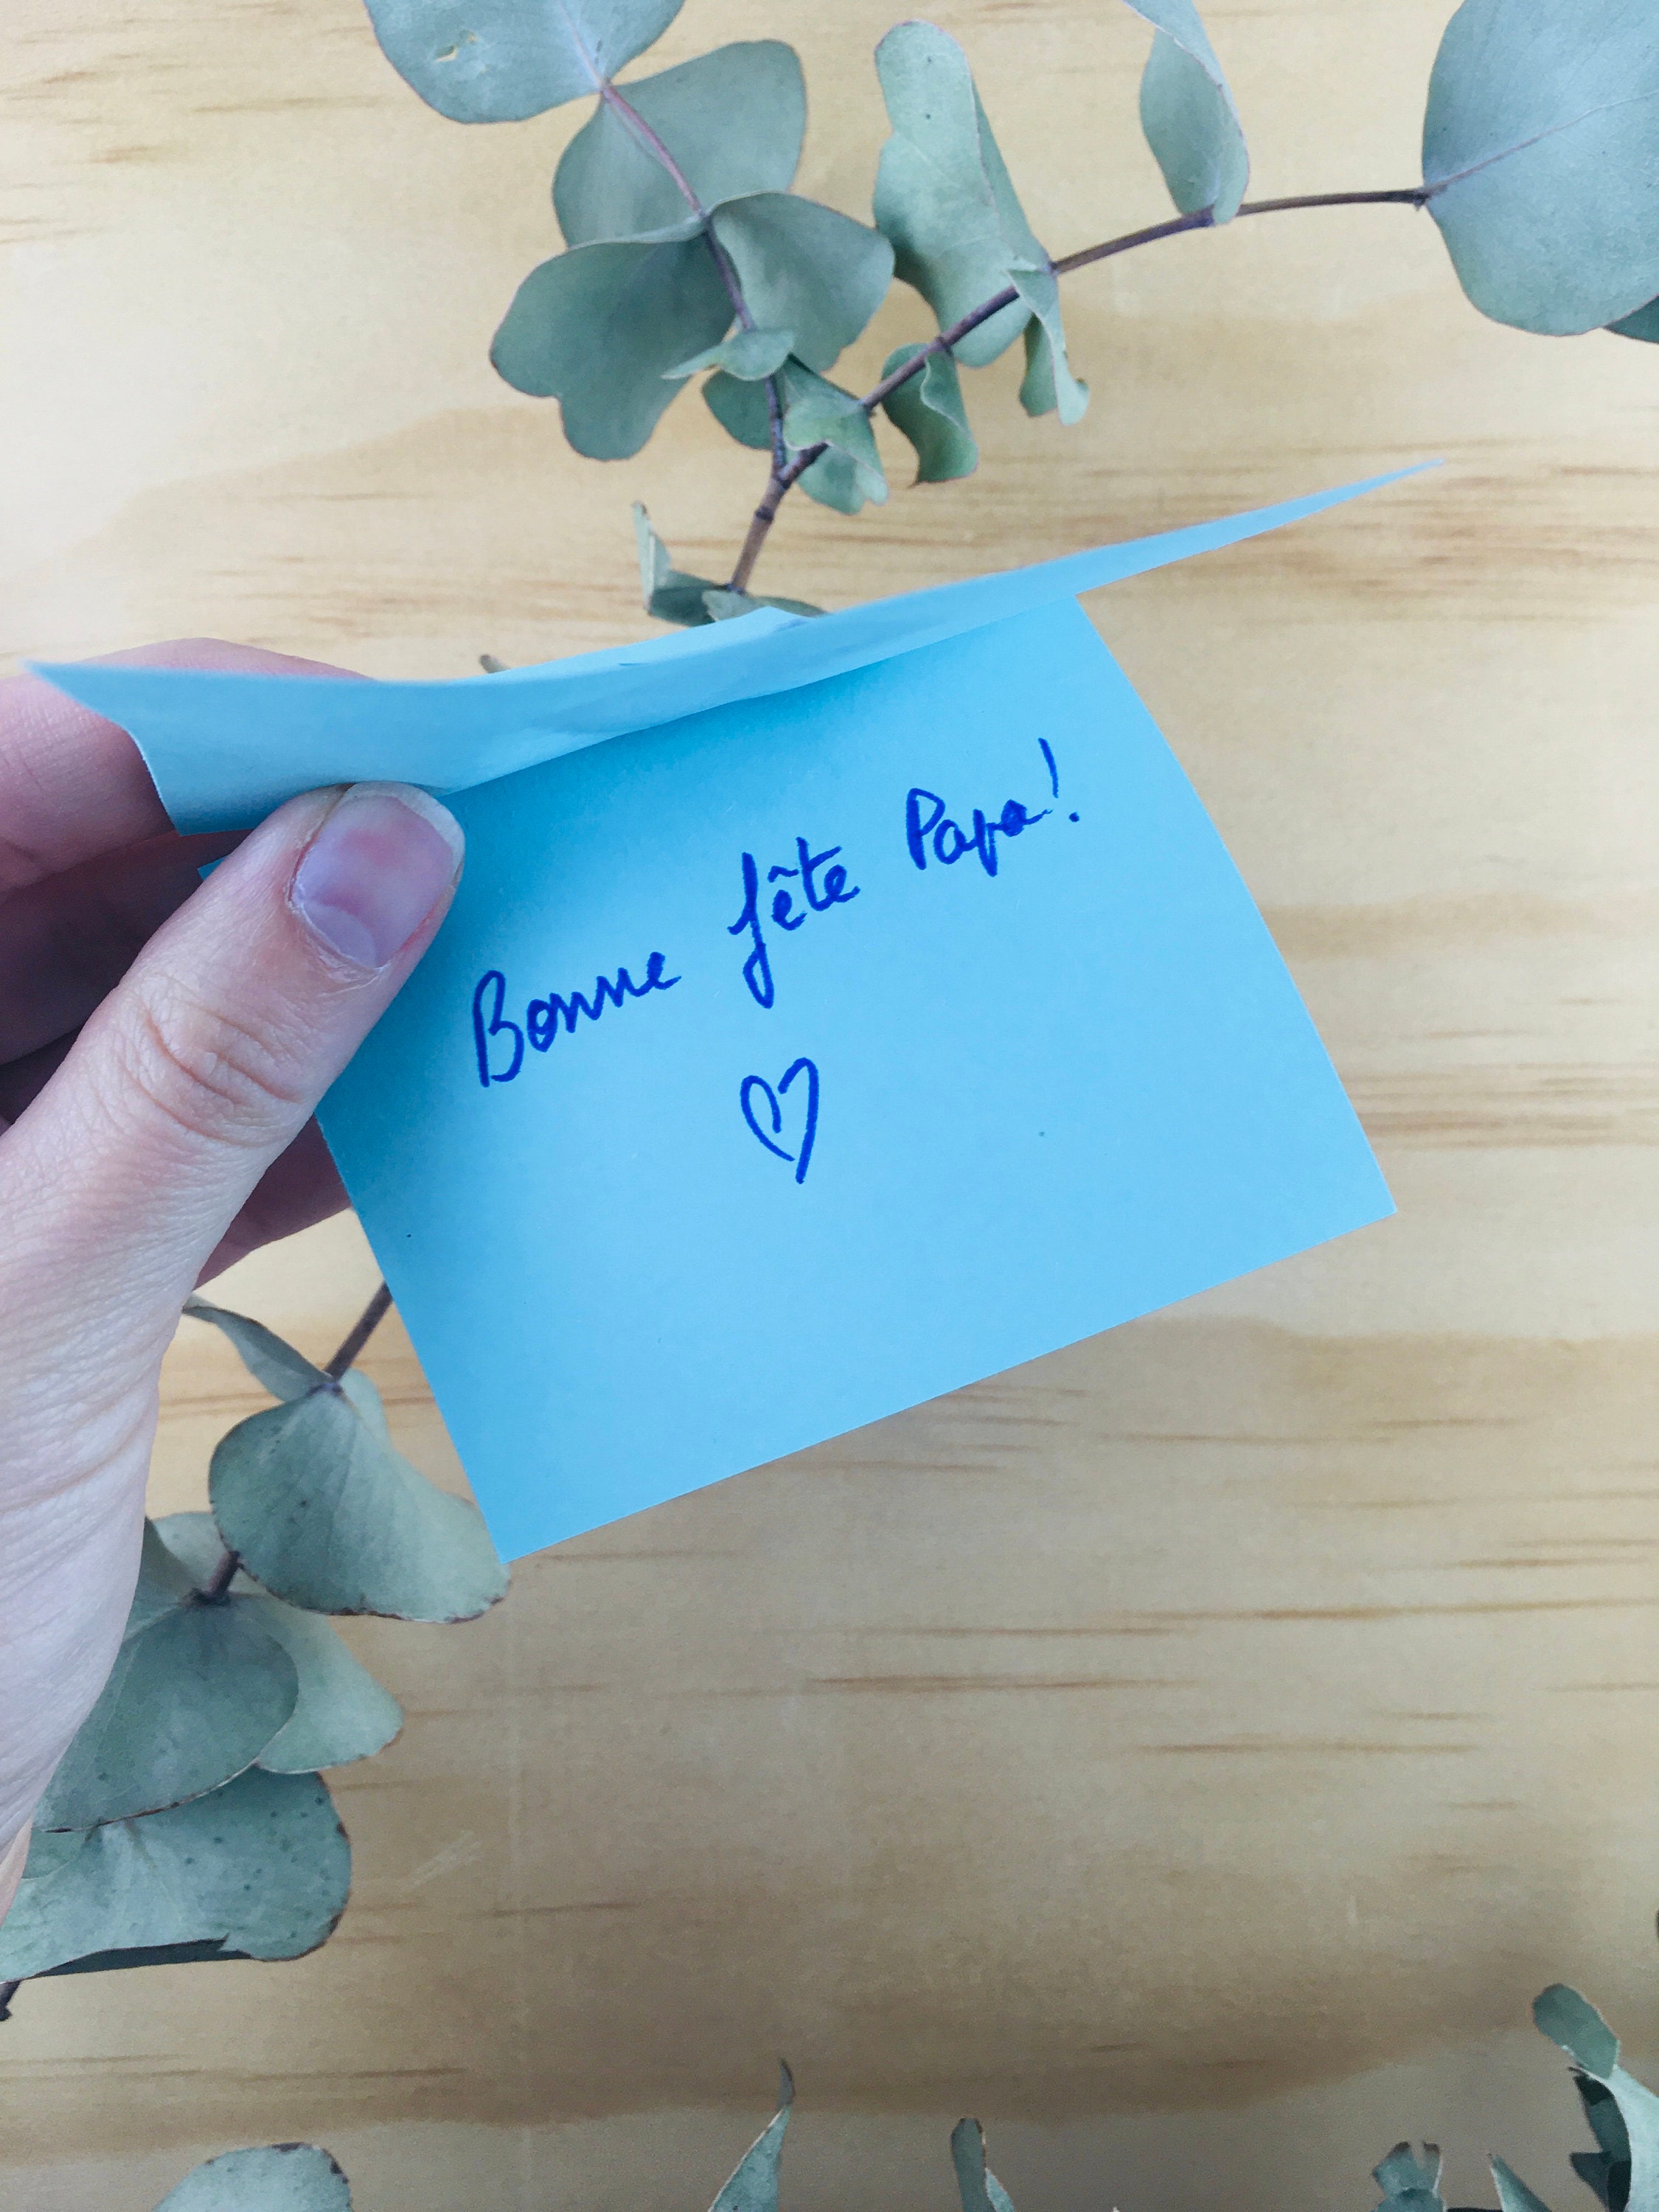 Bonne fête Papa!